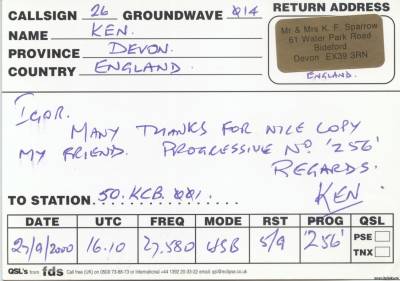 CALLSIGN 26 GROUNDWAVE 014
RETURN ADDRESS
NAME KEN.
PROVINCE DEVON.
COUNTRY ENGLAND.
Mr & Mrs K. F. Sparrow
61 Water Park Road
Bideford
Devon EX39 3RN
ENGLAND.
IGOR.
MANY THANKS FOR NICE COPY
MY FRIEND. PROGRESSIVE No. '256'
REGARDS.
KEN
TO STATION 50.KCB.001.
DATE UTC FREQ MODE RST PROG QSL
27/9/2000 16.10 27.580 USB 5/9 '256' PSE
TNX
QSL's from fds Call free (UK) on 0500 73-88-13 or International +44 1392 20-33-22 email: qsl@eclipse.co.uk